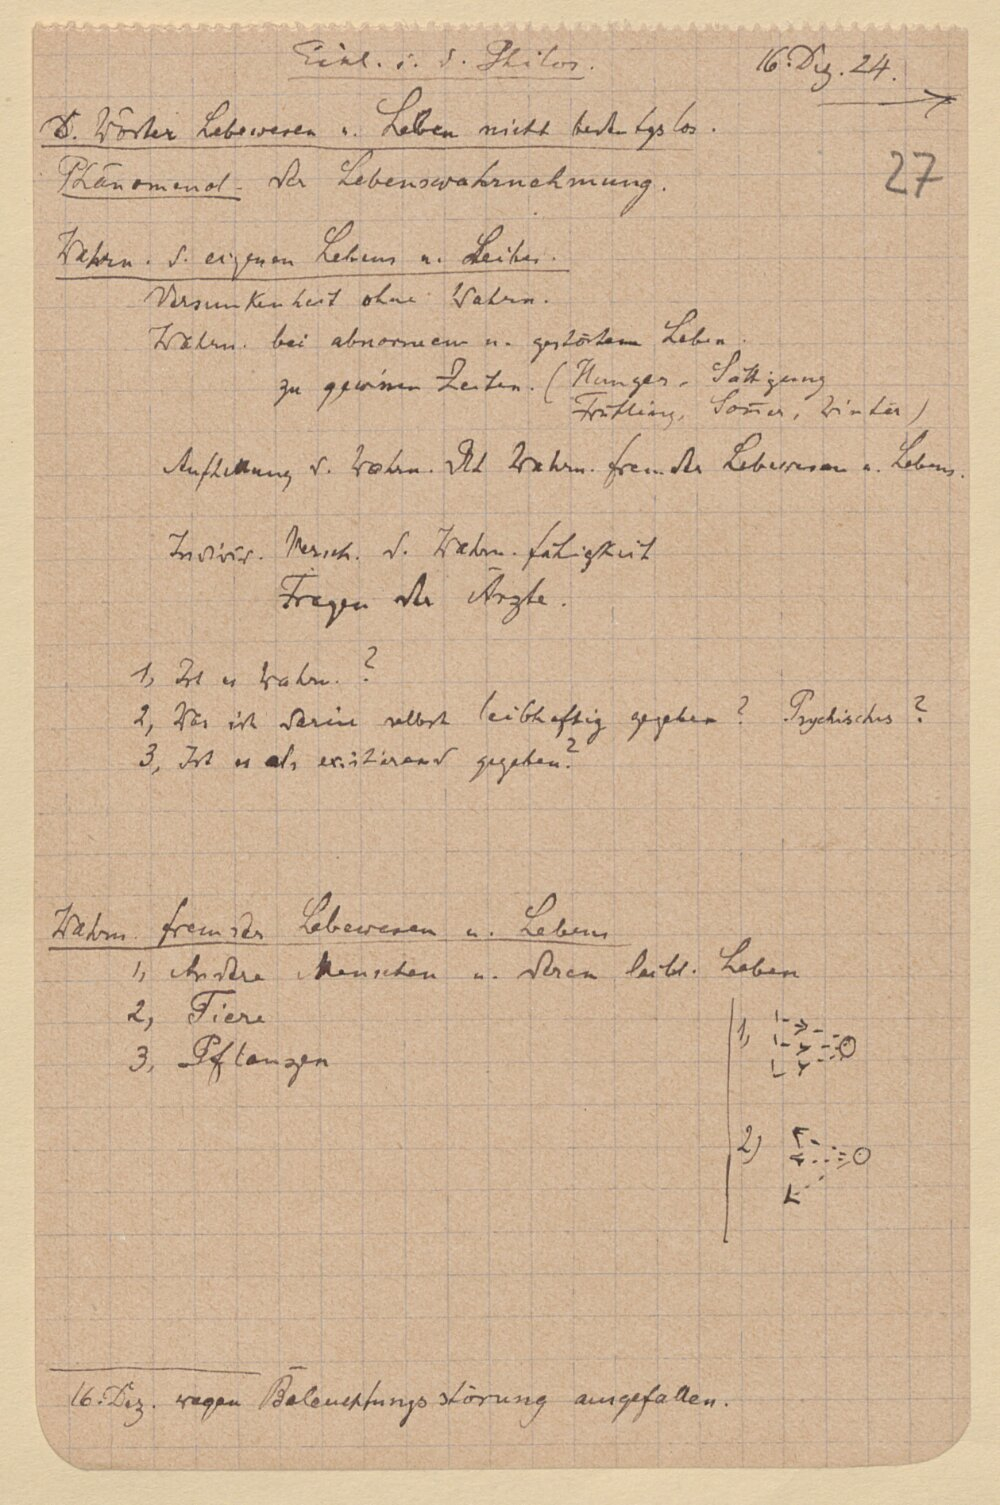 Einl. i. d. Philos. 16. Dez. 24.
27
D. Wörter Lebewesen u. Leben nicht bedeutgslos.
Phänomenol. der Lebenswahrnehmung.
Wahrn. d. eigenen Lebens u. Leibes.
Versunkenheit ohne Wahrn.
Wahrn. bei abnormem u. gestörtem Leben.
zu gewissen Zeiten. (Hunger, Sättigung
Frühling, Som̄er, Winter)
d. Wahrn. Wahrn. fremder Lebewesen u. Lebens.
Individ. Versch. d. Wahrn. fähigkeit
Fragen der Ärzte.
1, Ist es Wahrn.?
2, Was ist darin selbst leibhaftig gegeben? Psychisches?
3, Ist es als existierend gegeben?
Wahrn. fremder Lebewesen u. Lebens
1, Andere Menschen u. deren leibl. Leben
2, Tiere
3, Pflanzen
1,
2)
16. Dez. wegen Beleuchtungsstörung ausgefallen.